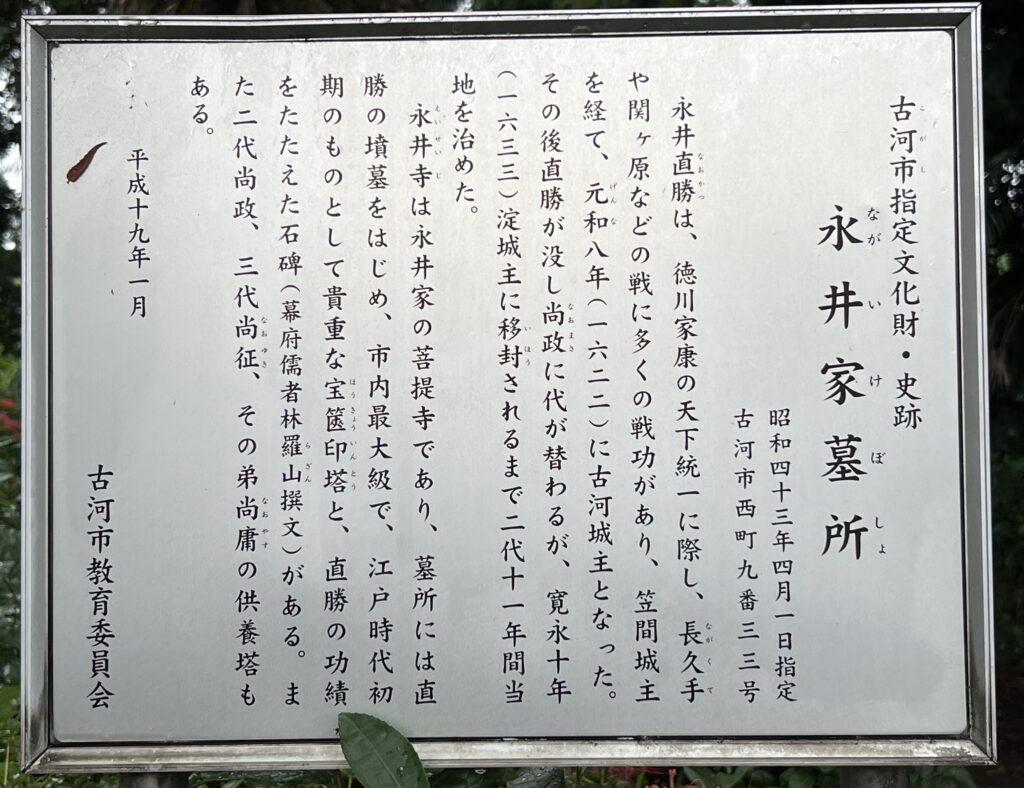 古河市指定文化財・史跡
永井家墓所
昭和四十三年四月一日指定
古河市西町九番三三号
永井直勝は、徳川家康の天下統一に際し、長久手
や関ヶ原などの戦に多くの戦功があり、笠間城主
を経て、元和八年(一六二二)に古河城主となった。
その後直勝が没し尚政に代が替わるが、寛永十年
(一六三三)淀城主に移封されるまで二代十一年間当
地を治めた。
永井寺は永井家の菩提寺であり、墓所には直
勝の墳墓をはじめ、市内最大級で、江戸時代初
期のものとして貴重な宝篋印塔と、直勝の功績
をたたえた石碑(幕府儒者林羅山撰文)がある。ま
た二代尚政、三代尚征、その弟尚庸の供養塔も
ある。
平成十九年一月
古河市教育委員会